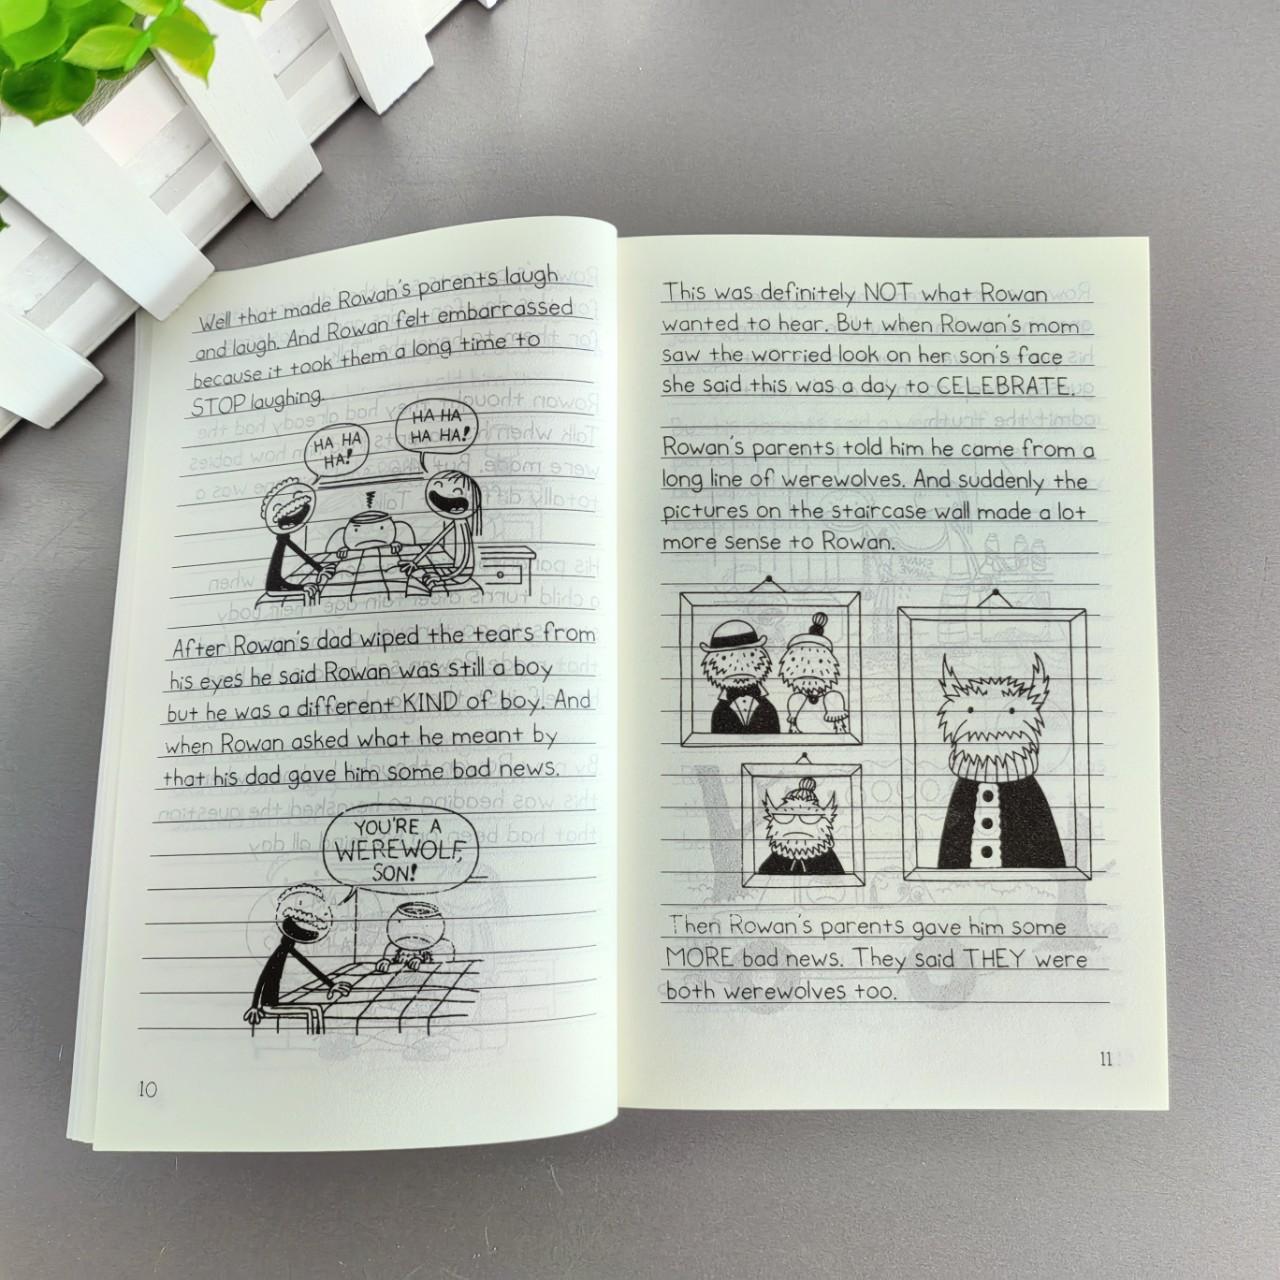 Well that made Rowan's parents laugh
and laugh. And Rowan felt embarrassed
because it took them a long time to
STOP laughing.
HA HA
HA!
HA HA
HA HA!
After Rowan's dad wiped the tears from
his eyes he said Rowan was still a boy
but he was a different KIND of boy. And
when Rowan asked what he meant by
that his dad gave him some bad news.
YOU'RE A
WEREWOLF,
SON!
10
This was definitely NOT what Rowan
wanted to hear. But when Rowan's mom
saw the worried look on her son's face
she said this was a day to CELEBRATE.
Rowan's parents told him he came from a
long line of werewolves. And suddenly the
pictures on the staircase wall made a lot
more sense to Rowan.
Then Rowan's parents gave him some
MORE bad news. They said THEY were
both werewolves too.
11